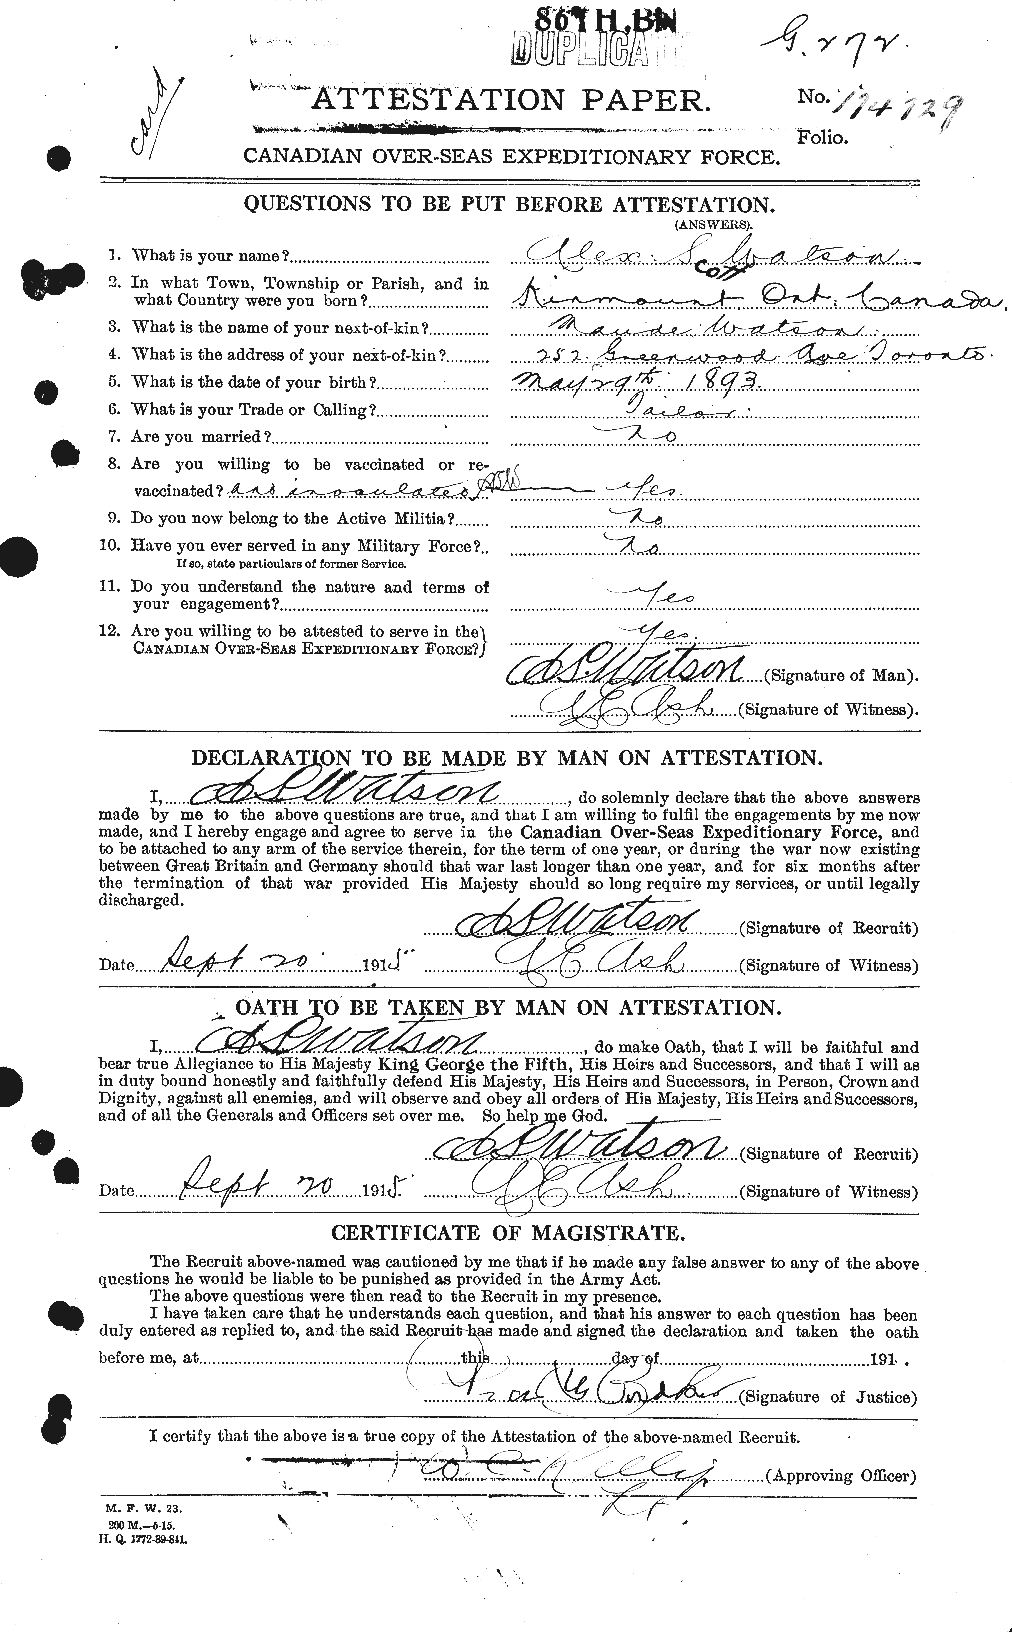 86TH. BN
DUPLICATE
G. 272.
card
ATTESTATION PAPER.
No. 174729
Folio.
CANADIAN OVER-SEAS EXPEDITIONARY FORCE.
QUESTIONS TO BE PUT BEFORE ATTESTATION.
(ANSWERS).
1. What is your name? Alex. Scott Watson
2. In what Town, Township or Parish, and in
what Country were you born? Kinmount. Ont. Canada.
3. What is the name of your next-of-kin? Maude Watson
4. What is the address of your next-of-kin? 252 Greenwood Ave Toronto.
5. What is the date of your birth? May 29th. 1893.
6. What is your Trade or Calling? Tailor.
7. Are you married? No
8. Are you willing to be vaccinated or re-
vaccinated? and inoculated ASW Yes.
9. Do you now belong to the Active Militia? No
10. Have you ever served in any Military Force? No
If so, state particulars of former Service.
11. Do you understand the nature and terms of
your engagement? Yes
12. Are you willing to be attested to serve in the Yes.
CANADIAN OVER-SEAS EXPEDITIONARY FORCE?
A S Watson (Signature of Man).
Ash (Signature of Witness).
DECLARATION TO BE MADE BY MAN ON ATTESTATION.
I, A S Watson, do solemnly declare that the above answers
made by me to the above questions are true, and that I am willing to fulfil the engagements by me now
made, and I hereby engage and agree to serve in the Canadian Over-Seas Expeditionary Force, and
to be attached to any arm of the service therein, for the term of one year, or during the war now existing
between Great Britain and Germany should that war last longer than one year, and for six months after
the termination of that war provided His Majesty should so long require my services, or until legally
discharged.
A S Watson (Signature of Recruit)
Date Sept 20 1915 Ash (Signature of Witness)
OATH TO BE TAKEN BY MAN ON ATTESTATION.
I, A S Watson, do make Oath, that I will be faithful and
bear true Allegiance to His Majesty King George the Fifth, His Heirs and Successors, and that I will as
in duty bound honestly and faithfully defend His Majesty, His Heirs and Successors, in Person, Crown and
Dignity, against all enemies, and will observe and obey all orders of His Majesty, His Heirs and Successors,
and of all the Generals and Officers set over me. So help me God.
A S Watson (Signature of Recruit)
Date Sept 20 1915 Ash (Signature of Witness)
CERTIFICATE OF MAGISTRATE.
The Recruit above-named was cautioned by me that if he made any false answer to any of the above
questions he would be liable to be punished as provided in the Army Act.
The above questions were then read to the Recruit in my presence.
I have taken care that he understands each question, and that his answer to each question has been
duly entered as replied to, and the said Recruit has made and signed the declaration and taken the oath
before me, at this day of 191 .
(Signature of Justice)
I certify that the above is a true copy of the Attestation of the above-named Recruit.
(Approving Officer)
Lt
M. F. W. 23.
200 M.—6-15.
H. Q. 1772-39-841.